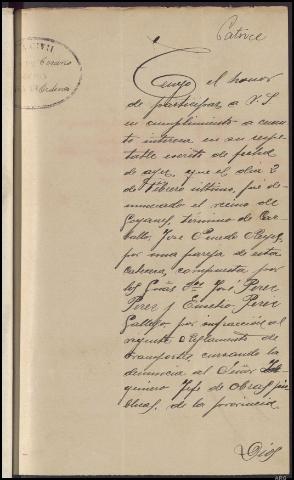 Tengo el honor
de participar a V.S
en cumplimiento a cuan
to interesa en su respe
table escrito de fecha
de ayer, que el dia 2
de Febrero último, fue
denunciado el vecino de
Goyanes, término de Car
ballo, Jose
por una pareja de esta
compuesta por
los Guardias José Perez
Perez y Perez
Gallego, por infracción al
vigente Reglamento de
transportes, cursando la
denuncia al Señor In
geniero Jefe de Obras pú
blicas, de la provincia.
Dios
ARG